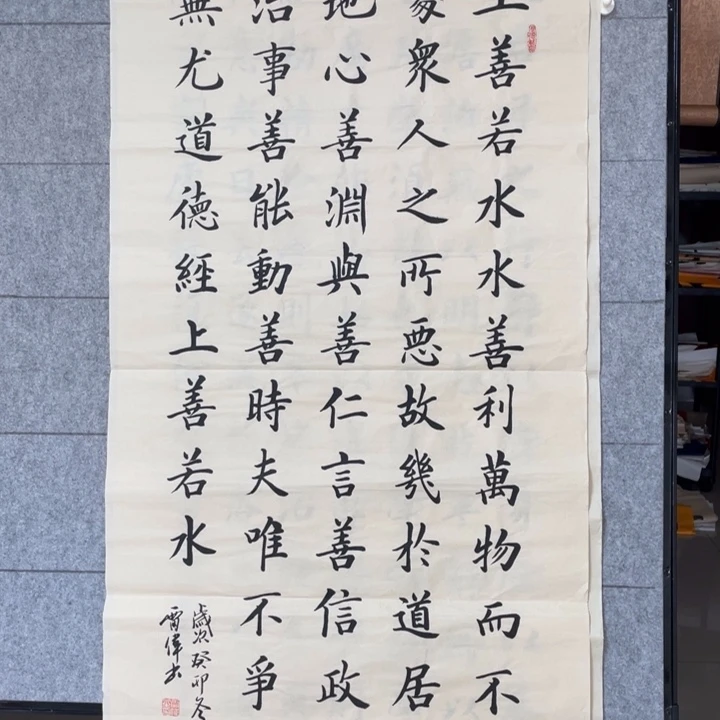 上善若水水善利萬物而不
處衆人之所惡故幾於道居
地心善淵與善仁言善信政
治事善能動善時夫唯不爭
無尤道德經上善若水
歲次癸卯冬
雷偉书